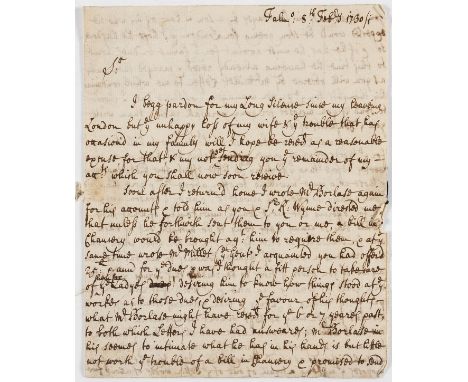 Falmo. 8th Feby 1730/1
Sr
I begg pardon for my Long Silence since my leaving
London but ye unhappy loss of my wife & ye trouble that has
occasiond in my family will I hope be recd as a reasonable
excuse for that & my not sending you ye remainder of my
acts which you shall now soon receive
Soon after I returnd home I wrote Mr Borlase again
for his accounts & told him as you & Sr R Wynne directed me
that unless he forthwith sent them to you or me, a bill in
Chancery would be brought agt him to require them, & at ye
same time wrote Mr Millet ye Gent I acquainted you had offerd
ann for ye dues & was thought a fitt person to take care
of ye Ladyes desiring him to know how things stood at ye
workes as to those dues, & desiring ye favour of his thoughts
what Mr Borlase might have recd for ye 6 or 7 years past
to both which Letters I have had answeares; Mr Borlase in
his seemes to intimate what he has in his hands is but little
not worth ye trouble of a bill in Chancery & promised to send